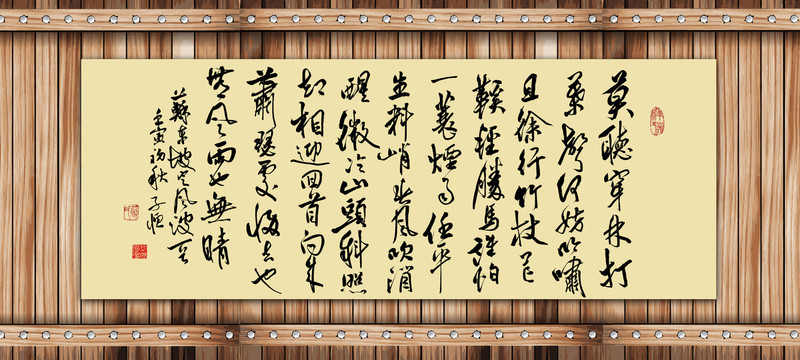 莫聽穿林打
葉聲何妨吟嘯
且徐行竹杖芒
鞵輕勝馬誰怕
一蓑煙雨任平
生料峭春風吹酒
醒微冷山頭斜照
却相迎回首向來
蕭瑟處歸去也
無風雨也無晴
蘇東坡定風波
壬寅初秋子恒